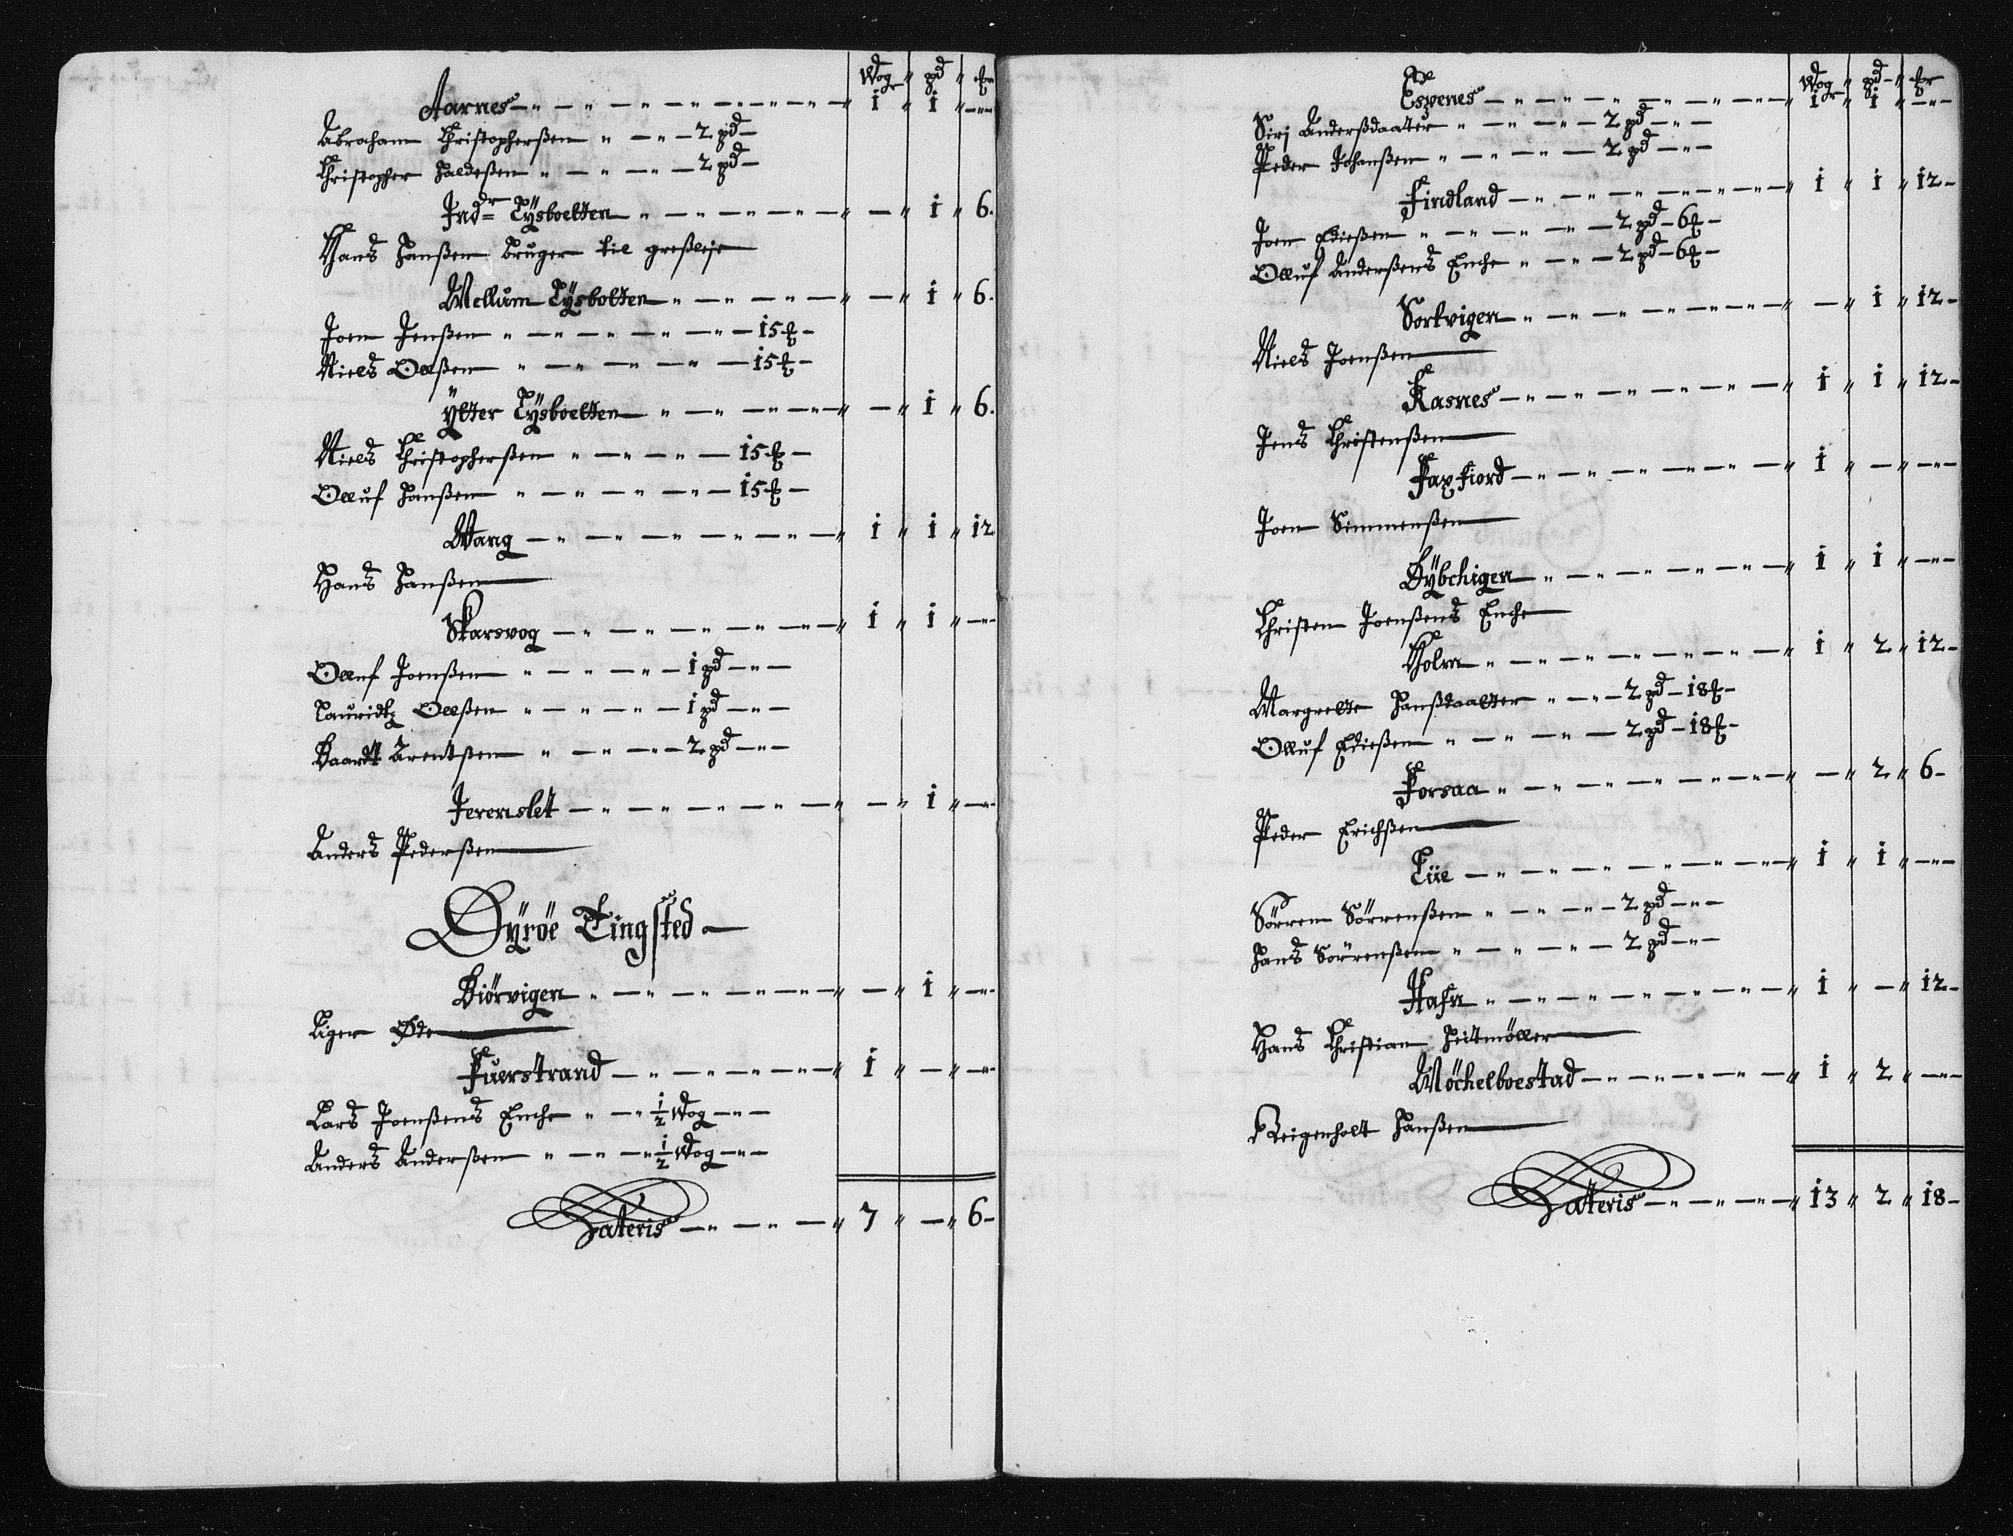 Wog " pd " ℔r
Aarnes — 1 " 1 " —
Abraham Christopherßen " — " — 2 pd —
Christopher Haldeßen " — " — 2 pd —
Indr= Tysboetten " — — " 1 " 6.
Hans Hanßen bruger til greßleje
Mellum Tysbotten " — — " 1 " 6.
Joen Jenßen " — " — 15 ℔ —
Niels Olßen " — " — 15 ℔ —
Ytter Tysboetten " — — " 1 " 6.
Niels Christopherßen " — " — 15 ℔ —
Olluf Hanßen " — " — 15 ℔ —
Wang — 1 " 1 " 12
Hans Hanßen
Skarsvog — 1 " 1 " —
Olluf Joenßen " — " — 1 pd —
Lauridtz Olßen " — " — 1 pd —
Baardt Arentsen " — " — 2 pd —
Jerenslet — — " 1 " —
Anders Pederßen
Dÿröe Tingsted
Biörvigen " — — " 1 " —
Liger Øde
Fuerstrand — 1 " — " —
Lars Joenßens Enche " — " 1/2 Wog —
Anders Anderßen " — " 1/2 Wog —
Lateris — 7 " — " 6 —
Wog " pd " ℔r
Espenes — 1 " 1 " —
Siri Anderßdaater " — " — 2 pd —
Peder Johanßen " — " — 2 pd —
Findland — 1 " 1 " 12 —
Joen Edießen " — " — 2 pd — 6 ℔ —
Olluf Anderßens Enche " — " — 2 pd — 6 ℔ —
Sortvigen " — — " 1 " 12 —
Niels Joenßen
Kasnes — 1 " 1 " 12 —
Jens Christenßen
Faxfiord — 1 " — " —
Joen Simmenßen
Dybchigen " — 1 " 1 " —
Christen Joenßens Enche
Holm " — 1 " 2 " 12 —
Margrette Hanßdaatter " — " — 2 pd — 18 ℔ —
Olluf Edießen " — " — 2 pd — 18 ℔ —
Forsaa " — — " 2 " 6 —
Peder Erichßen
Tüe — 1 " 1 " —
Sörren Sörrenßen " — " — 2 pd —
Hans Sörrenßen " — " — 2 pd —
Hafn " — 1 " — " 12 —
Hans Christian Heitmöller
Möchelboestad — 1 " 2 " —
Reigenholt Hanßen
Lateris — 13 " 2 " 18 —